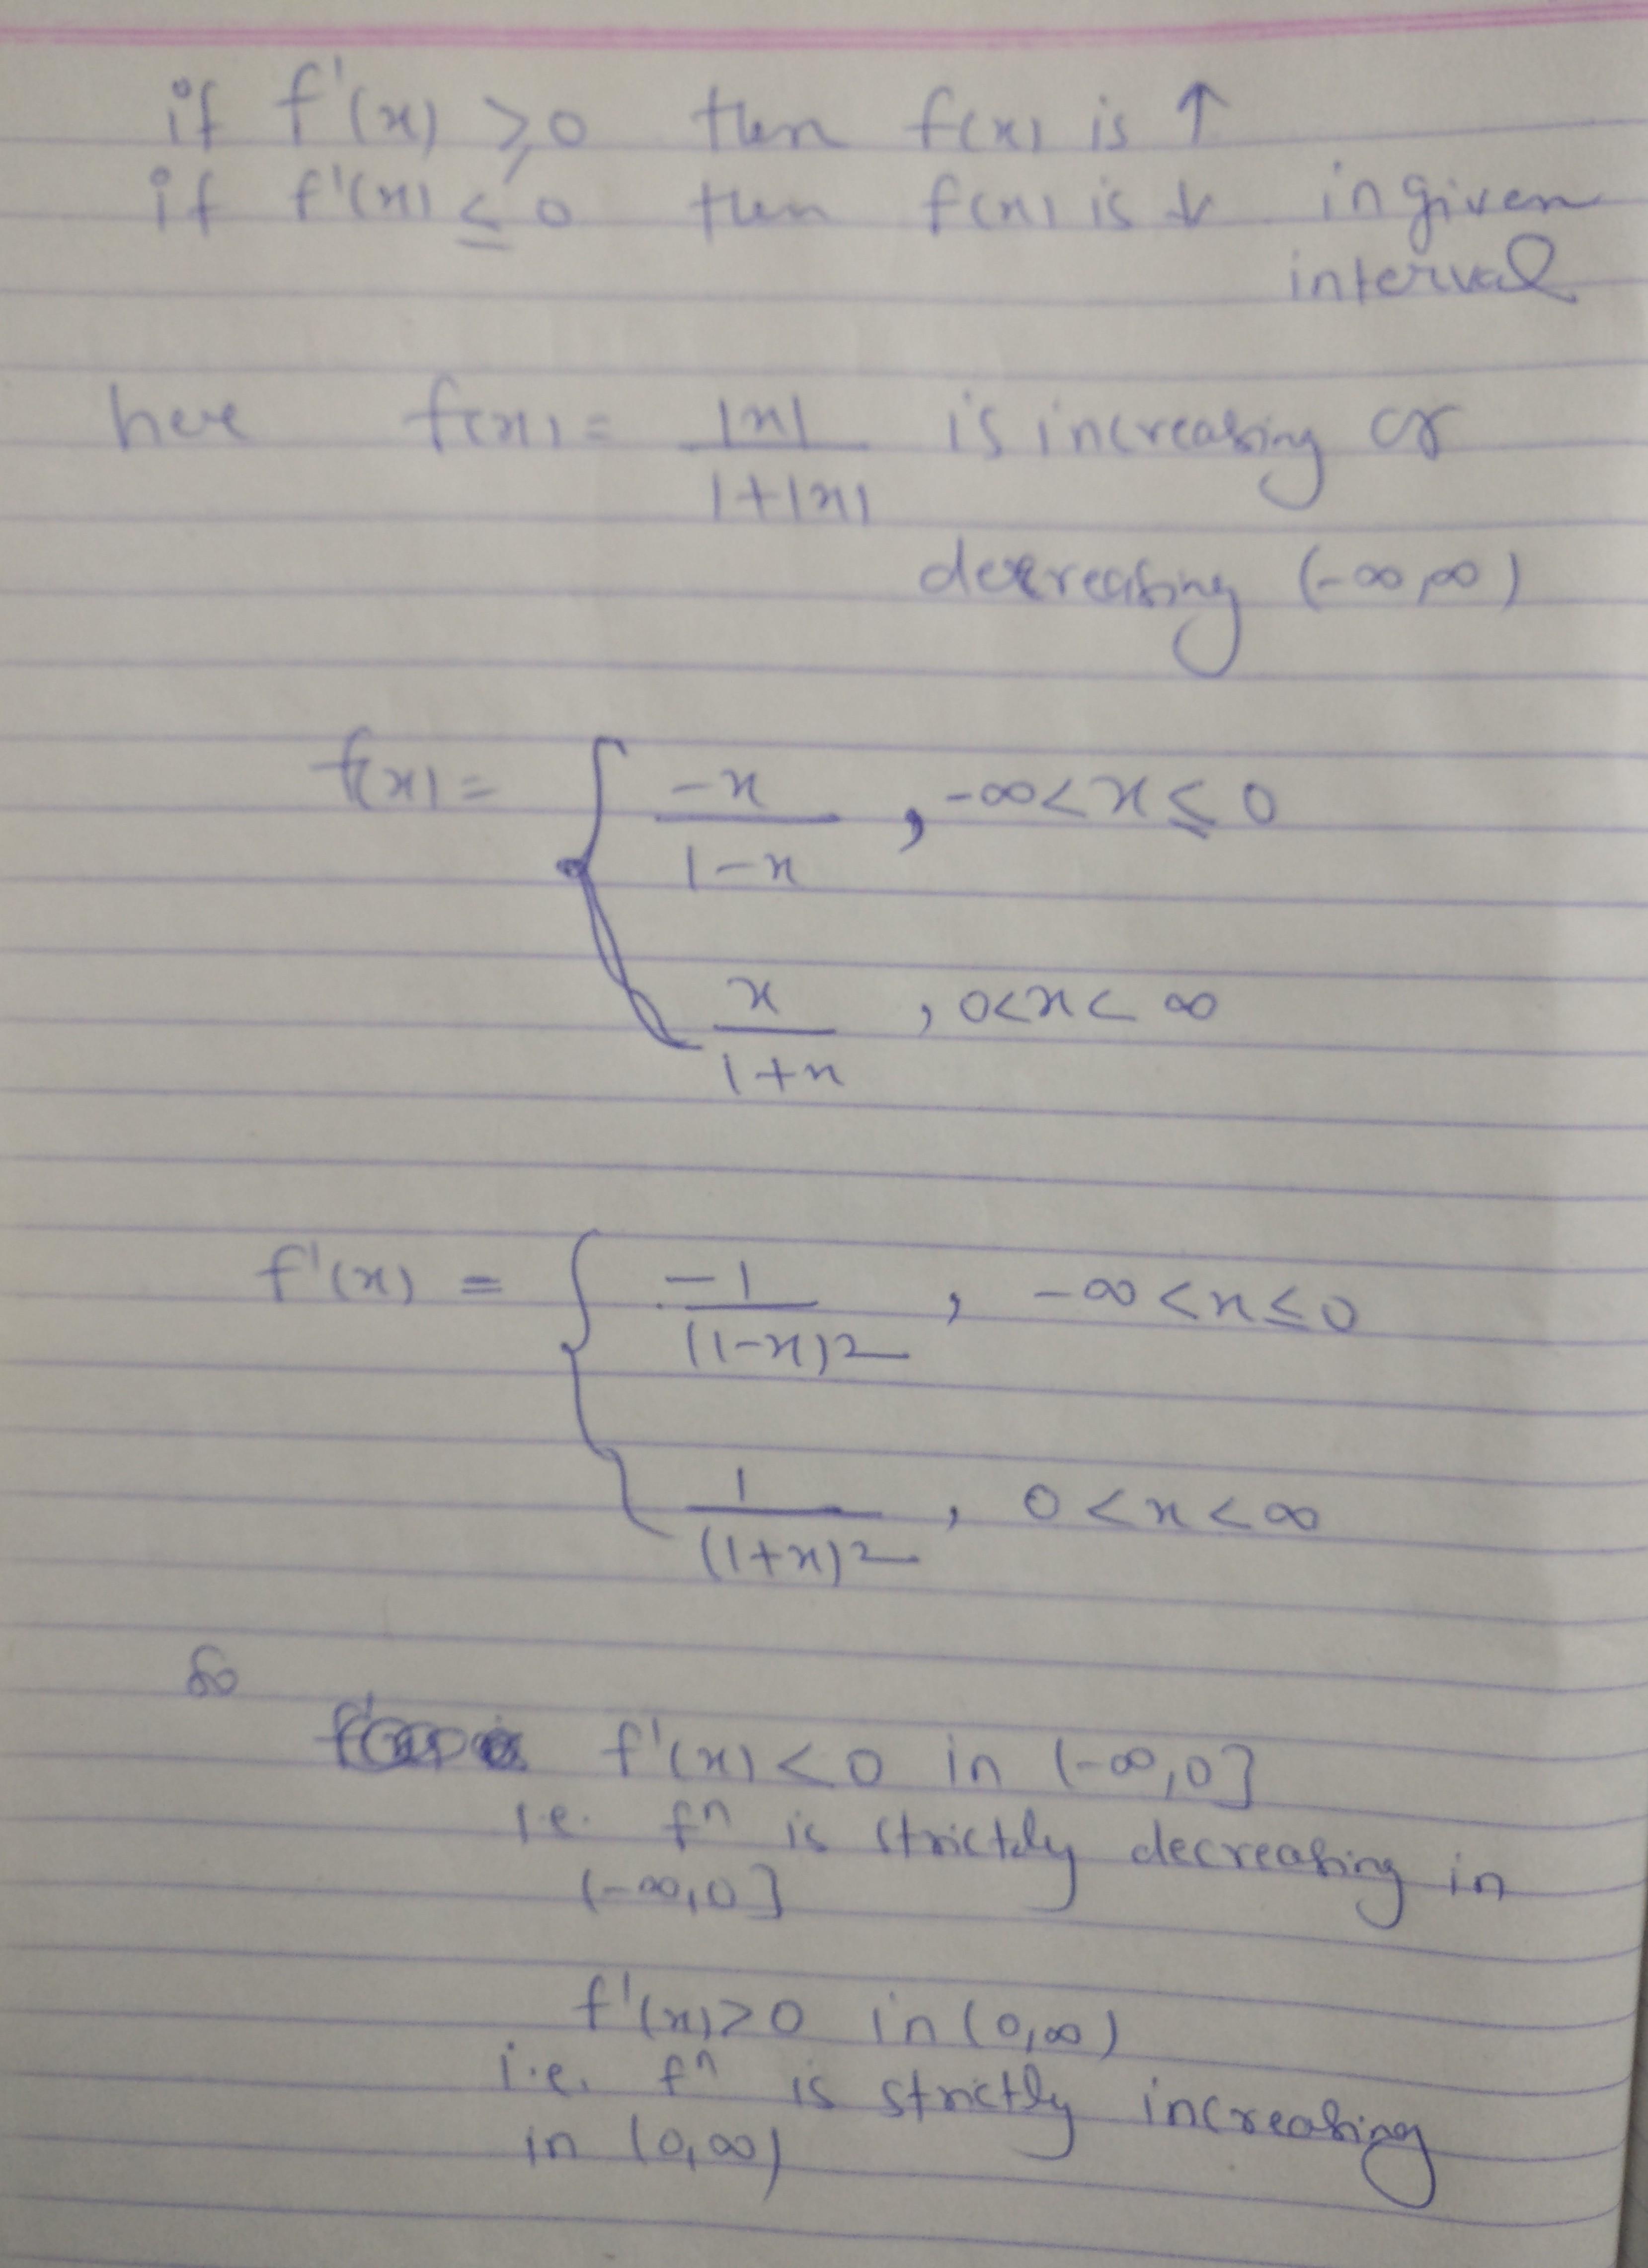 if f'(x) ≥ 0 then f(x) is ↑
if f'(x) ≤ 0 then f(x) is ↓ in given
interval
here f(x) = |x| / 1+|x| is increasing or
decreasing (-∞,∞)
f(x) = { -x / 1-x , -∞<x≤0
x / 1+x , 0<x<∞
f'(x) = { -1 / (1-x)2 , -∞<x≤0
1 / (1+x)2 , 0<x<∞
So
f'(x)<0 in (-∞,0]
i.e. fn is strictly decreasing in
(-∞,0]
f'(x)>0 in (0,∞)
i.e. fn is strictly increasing
in (0,∞)